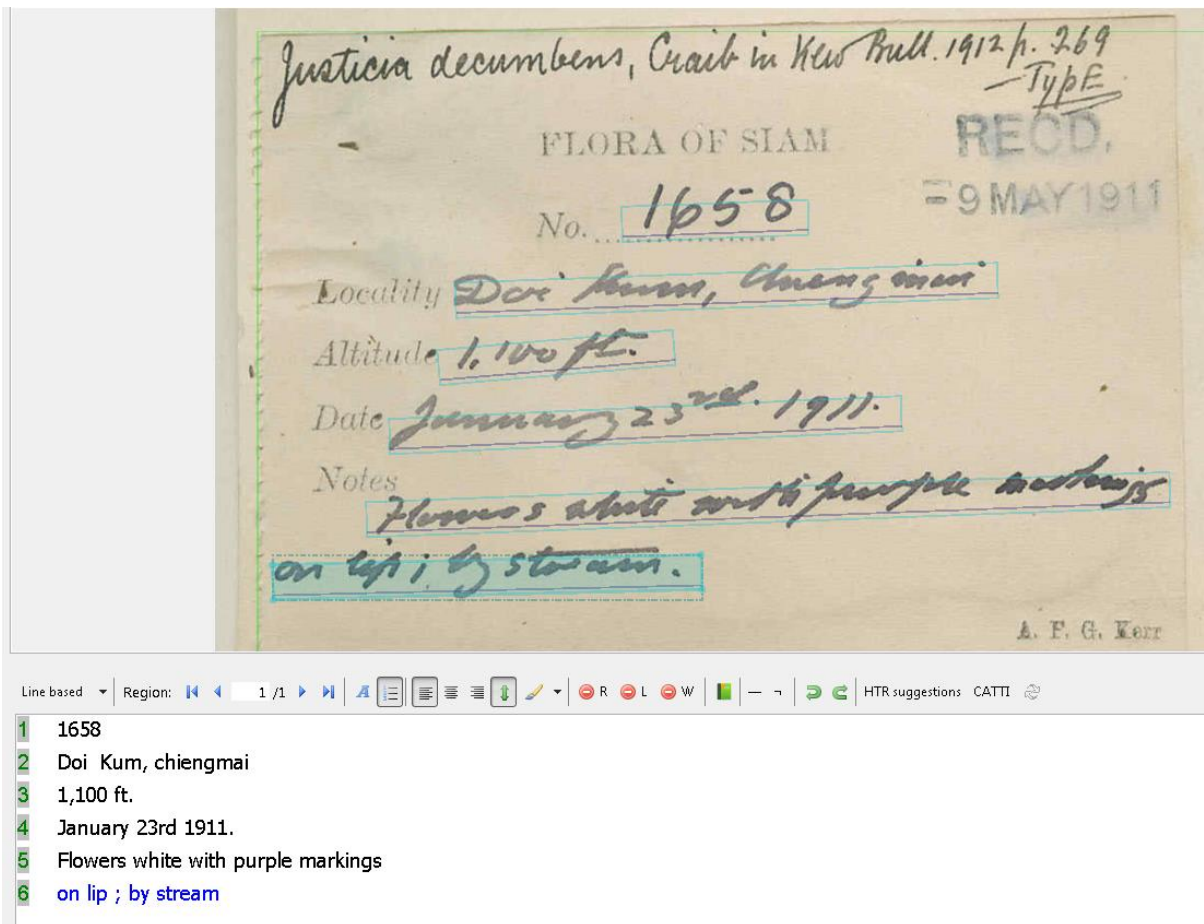 Justicia decumbens, Craib in Kew Bull. 1912 p. 269
— TypE
FLORA OF SIAM
RECD.
= 9 MAY 1911
No. 1658
Locality Doi Kum, Chiengmai
Altitude 1,100 ft.
Date January 23rd. 1911.
Notes
Flowers white with purple markings
on lip; by stream.
A. F. G. Kerr
Line based Region: 1 /1 A R L W HTR suggestions CATTI
1 1658
2 Doi Kum, chiengmai
3 1,100 ft.
4 January 23rd 1911.
5 Flowers white with purple markings
6 on lip ; by stream